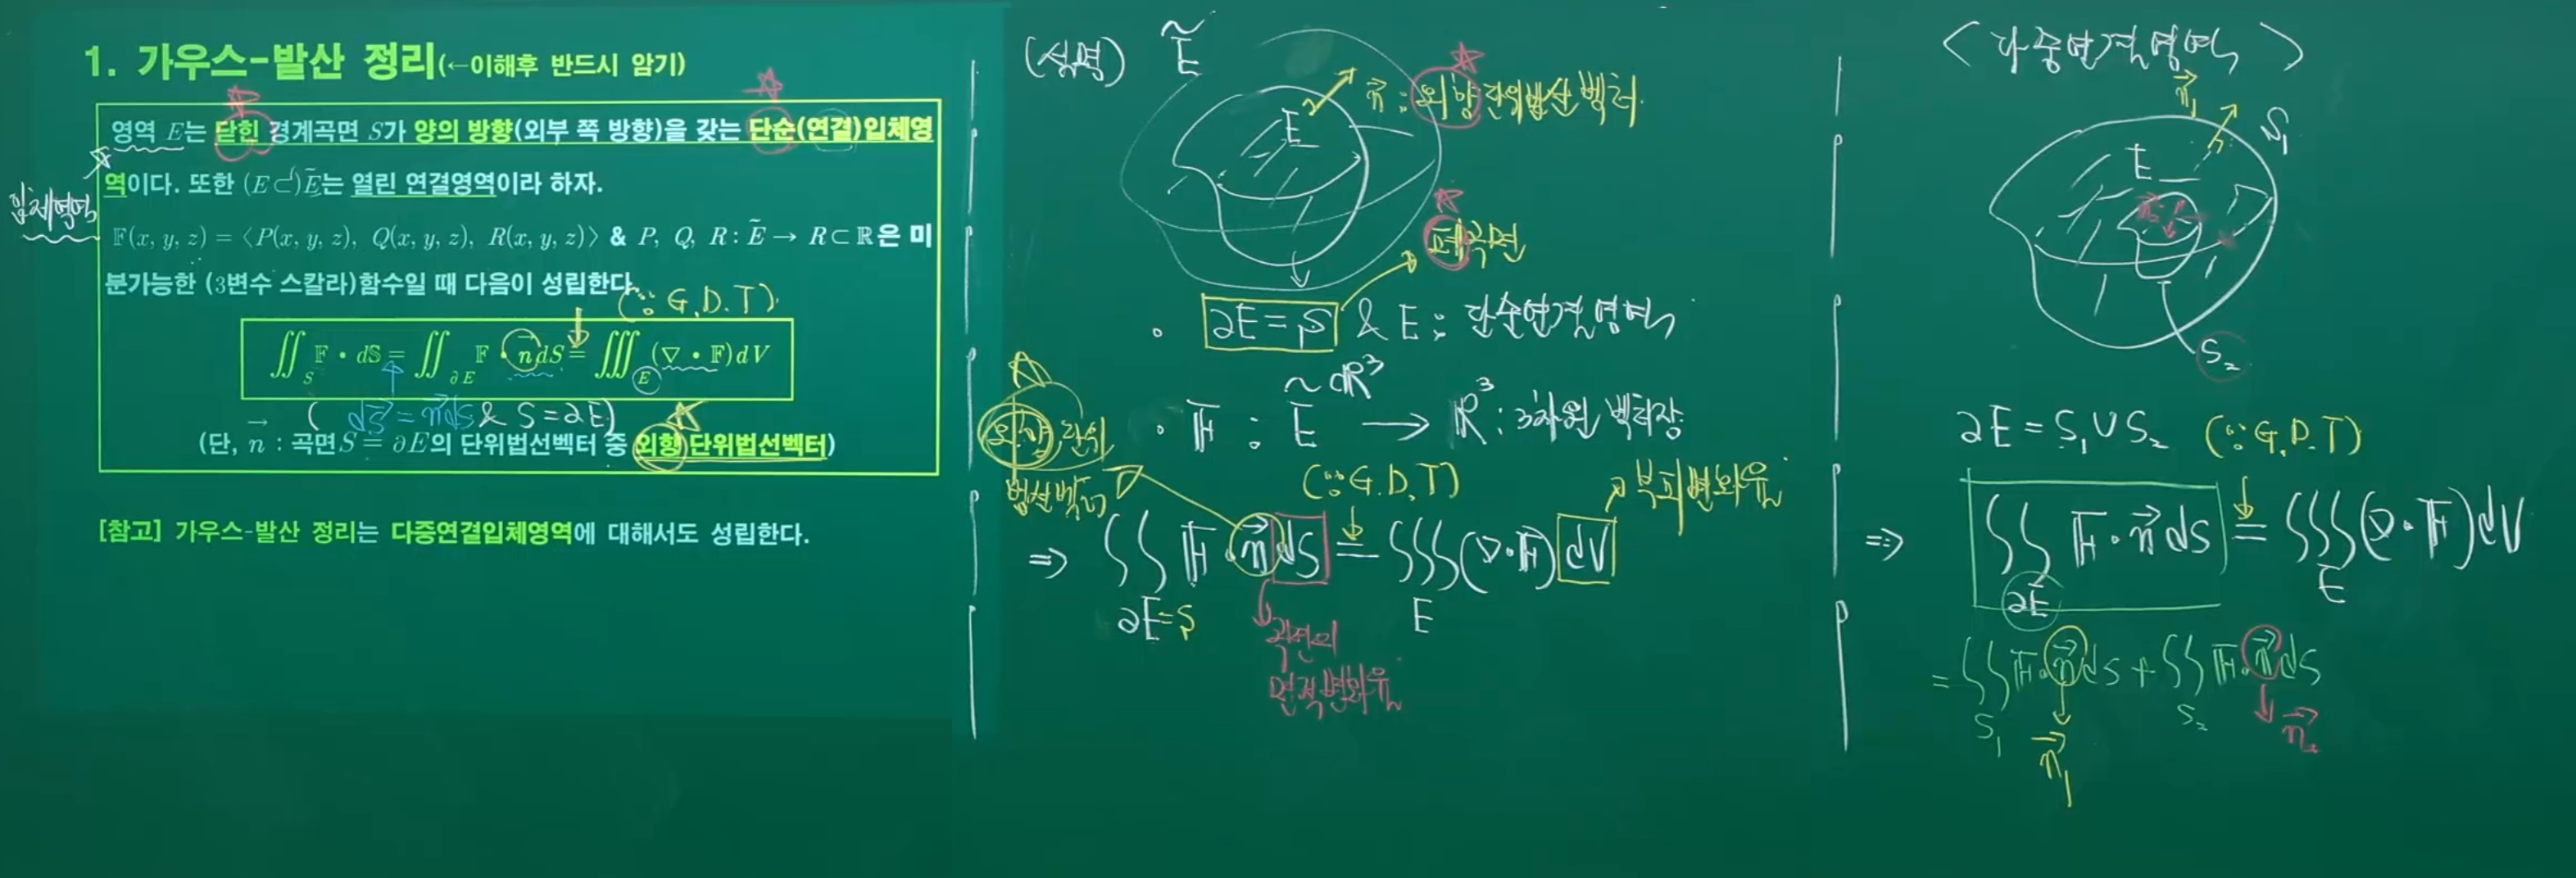 1. 가우스-발산 정리(←이해후 반드시 암기)
영역 E는 닫힌 경계곡면 S가 양의 방향(외부 쪽 방향)을 갖는 단순(연결)입체영
역이다. 또한 (E⊂)Ẽ는 열린 연결영역이라 하자.
입체영역
𝔽(x, y, z) = ⟨P(x, y, z), Q(x, y, z), R(x, y, z)⟩ & P, Q, R : Ẽ → R⊂ℝ은 미
분가능한 (3변수 스칼라)함수일 때 다음이 성립한다.
(∵ G.D.T)
∬_S 𝔽 • d𝕊 = ∬_∂E 𝔽 • n⃗dS = ∭_E (∇ • 𝔽)dV
( dS⃗ = n⃗dS & S=∂E)
(단, n⃗ : 곡면S = ∂E의 단위법선벡터 중 외향 단위법선벡터)
[참고] 가우스-발산 정리는 다중연결입체영역에 대해서도 성립한다.
(설명)
Ẽ
E
n⃗ : 외향단위법선벡터
폐곡면
• ∂E=S & E : 단순연결영역
• 𝔽 : Ẽ ⊂ℝ³ → ℝ³ : 3차원 벡터장
외향 단위
법선벡터
(∵ G.D.T)
부피변화율
⇒ ∬_∂E=S 𝔽 • n⃗ dS = ∭_E (∇•𝔽) dV
곡면의
면적변화율
<다중연결영역>
n⃗₁
S₁
E
n⃗₂
S₂
∂E = S₁∪S₂ (∵ G.D.T)
⇒ ∬_∂E 𝔽 • n⃗ dS = ∭_E (∇•𝔽)dV
= ∬_S₁ 𝔽•n⃗ dS + ∬_S₂ 𝔽•n⃗ dS
n⃗₁
n⃗₂